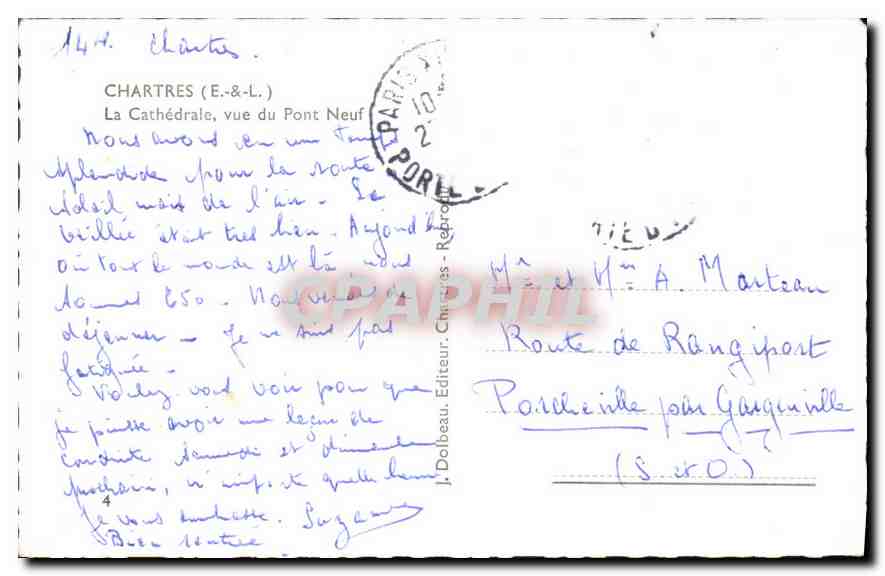 14H. Chartres.
CHARTRES (E.-&-L.)
La Cathédrale, vue du Pont Neuf
Nous avons eu un temps
splendide pour la route
soleil mais de l'air - La
veillée était très bien - Aujourd'hui
où tout le monde est là nous
sommes 250 - Nous venons de
déjeuner - Je ne suis pas
fatiguée -
Voulez vous voir pour que
je puisse avoir une leçon de
conduite samedi et dimanche
prochain, n'importe quelle heure
Je vous embrasse. Suzanne
Bien rentrée
4
J. Dolbeau. Editeur. Chartres - Reprodu
PARIS
10
2
PORTE
Mr et Mme A. Marteau
Route de Rangiport
Porcheville par Gargenville
(S et O)
CPAPHIL